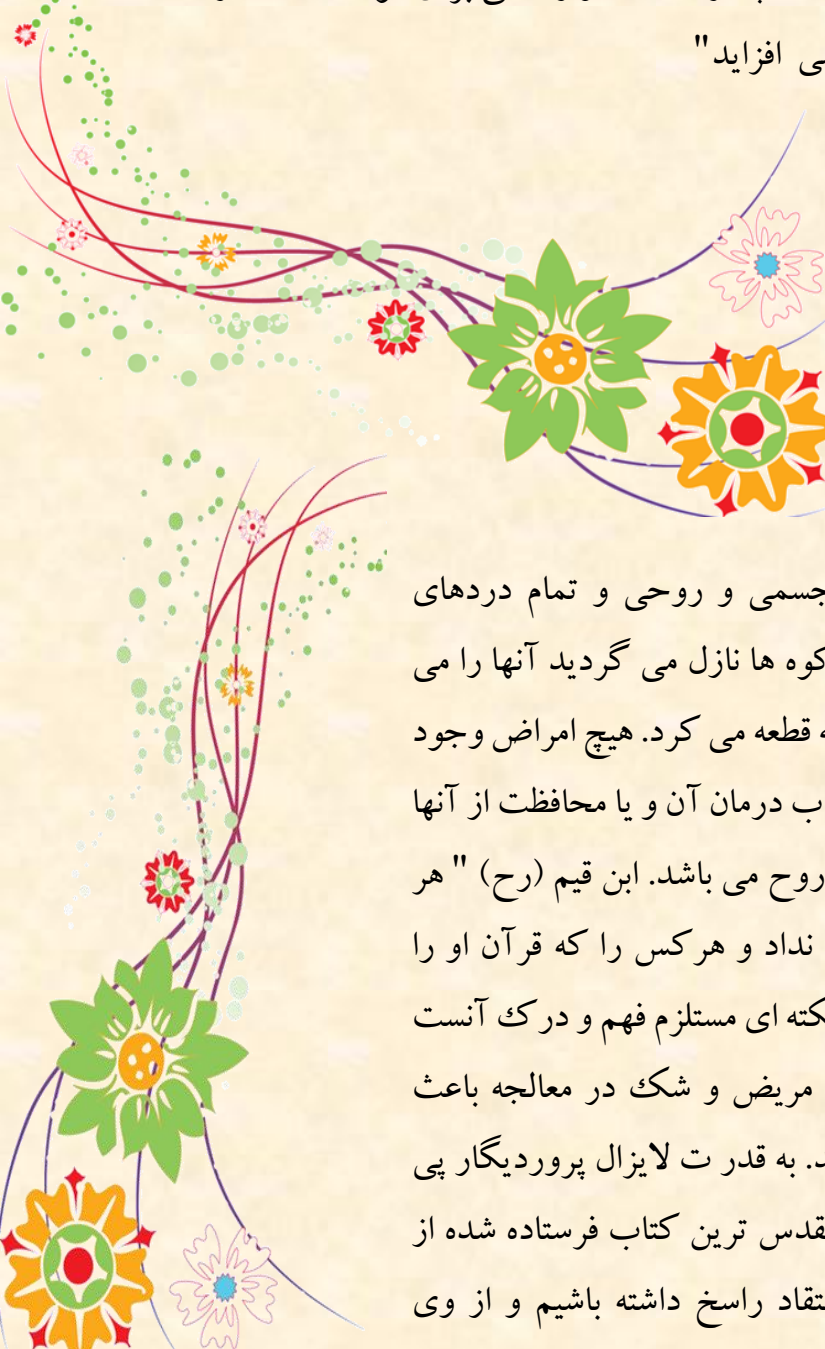 ی افزاید"
جسمی و روحی و تمام دردهای
کوه ها نازل می گردید آنها را می
ه قطعه می کرد. هیچ امراض وجود
ب درمان آن و یا محافظت از آنها
روح می باشد. ابن قیم (رح) " هر
نداد و هرکس را که قرآن او را
کته ای مستلزم فهم و درک آنست
مریض و شک در معالجه باعث
د. به قدر ت لایزال پروردیگار پی
قدس ترین کتاب فرستاده شده از
تقاد راسخ داشته باشیم و از وی